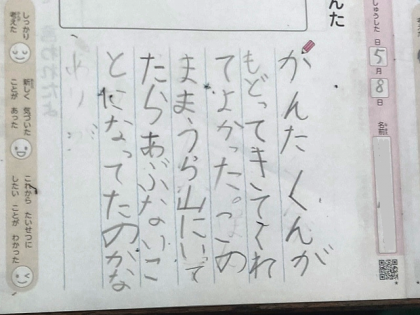 んた
しゅうした日
5月
8日
名前
かんたくんが
もどってきてくれ
てよかった。この
ままうら山にいって
たらあぶないこ
とになってたのかな
しっかり考えた
新しく気づいたことがあった
これからたいせつにしたいことがわかった